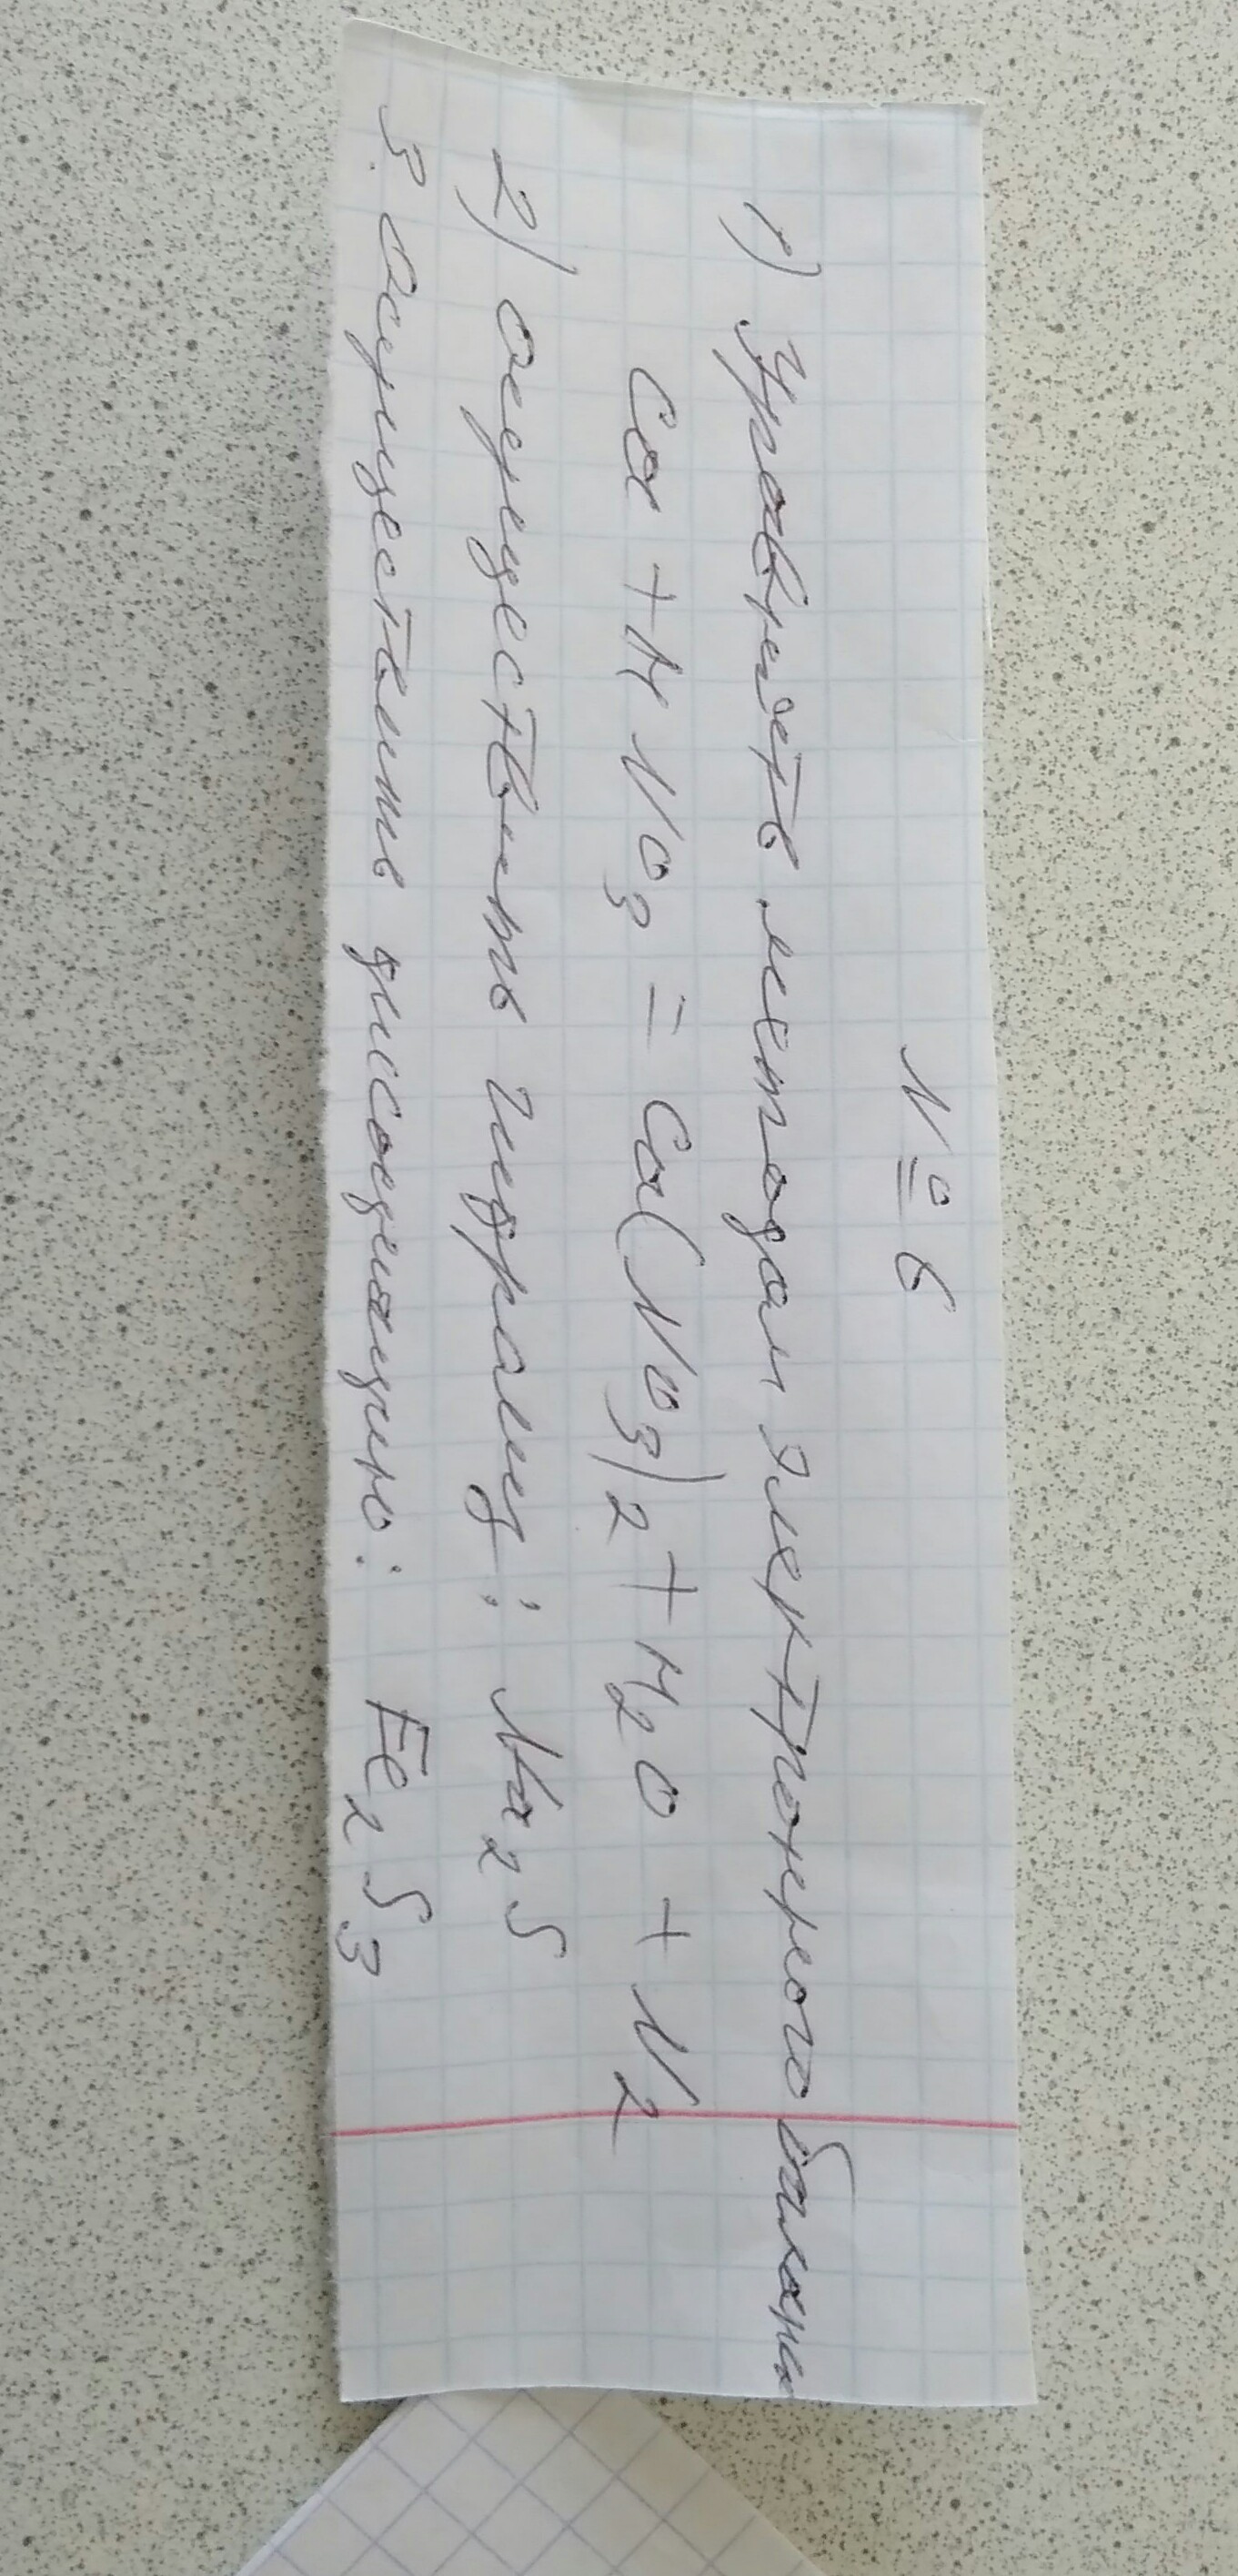 № 6
1) Уравнять методом электронного баланс
Ca + HNO3 = Ca(NO3)2 + H2O + N2
2) осуществить гидролиз: Na2S
3. осуществить диссоциацию: Fe2S3